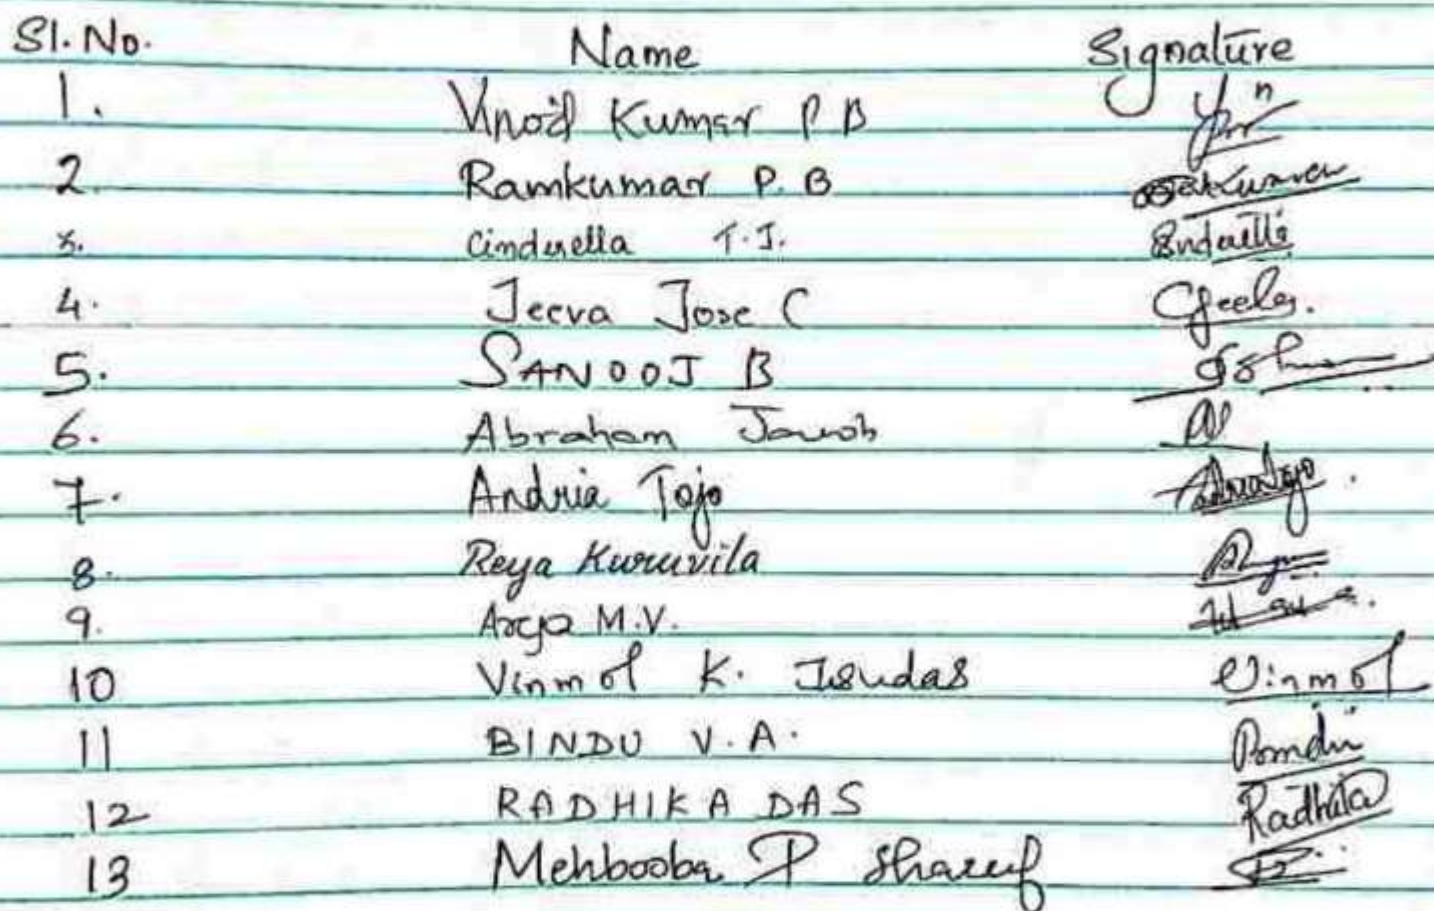 Sl. No. Name Signature
1. Vinod Kumar P B
2. Ramkumar P. B
3. Cinderella T.J.
4. Jeeva Jose C
5. SANOOJ B
6. Abraham Jacob
7. Andria Tojo AndriaTojo
8. Reya Kuruvila
9. Arya M.V.
10 Vinmol K. Jesudas Vinmol
11 BINDU V.A. Bindu
12 RADHIKA DAS Radhika
13 Mehbooba P Shareef